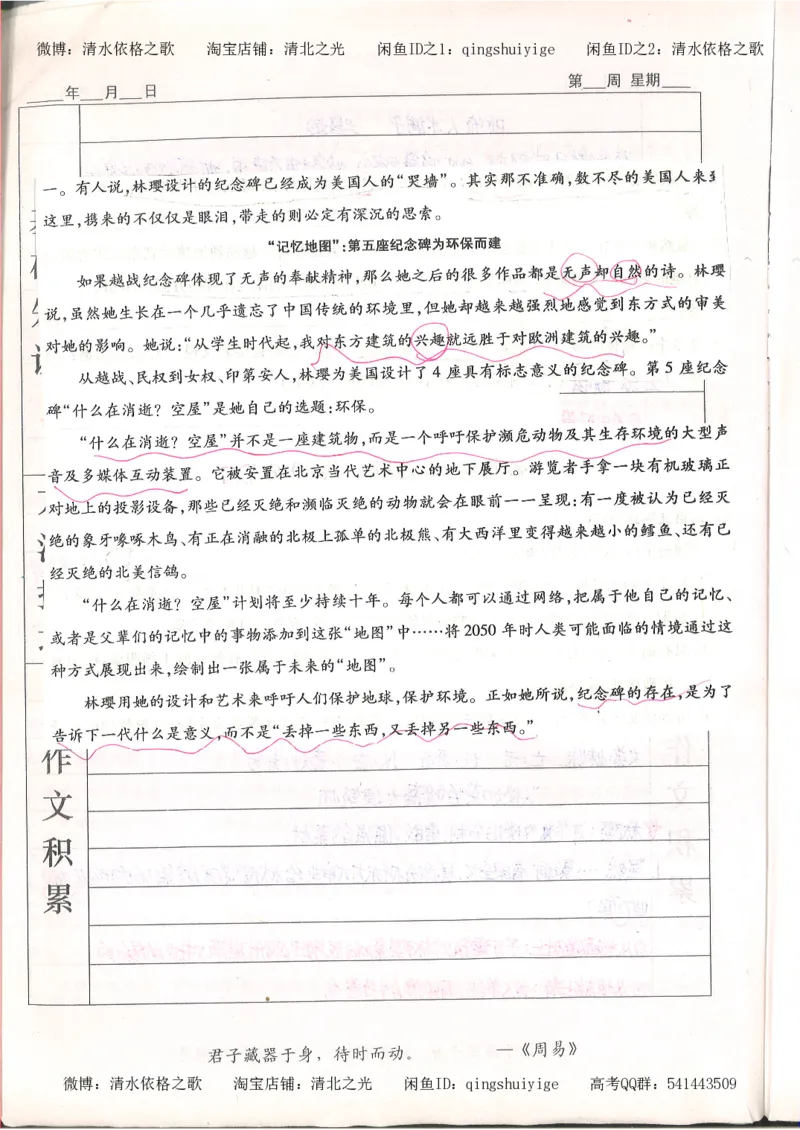 微博：清水依格之歌 淘宝店铺：清北之光 闲鱼ID之1：qingshuiyige 闲鱼ID之2：清水依格之歌
____年___月___日 第___周 星期____
一。有人说,林璎设计的纪念碑已经成为美国人的“哭墙”。其实那不准确,数不尽的美国人来到
这里,携来的不仅仅是眼泪,带走的则必定有深沉的思索。
“记忆地图”:第五座纪念碑为环保而建
如果越战纪念碑体现了无声的奉献精神,那么她之后的很多作品都是无声却自然的诗。林璎
说,虽然她生长在一个几乎遗忘了中国传统的环境里,但她却越来越强烈地感觉到东方式的审美
对她的影响。她说:“从学生时代起,我对东方建筑的兴趣就远胜于对欧洲建筑的兴趣。”
从越战、民权到女权、印第安人,林璎为美国设计了4座具有标志意义的纪念碑。第5座纪念
碑“什么在消逝？空屋”是她自己的选题:环保。
“什么在消逝？空屋”并不是一座建筑物,而是一个呼吁保护濒危动物及其生存环境的大型声
音及多媒体互动装置。它被安置在北京当代艺术中心的地下展厅。游览者手拿一块有机玻璃正
对地上的投影设备,那些已经灭绝和濒临灭绝的动物就会在眼前一一呈现:有一度被认为已经灭
绝的象牙喙啄木鸟、有正在消融的北极上孤单的北极熊、有大西洋里变得越来越小的鳕鱼、还有已
经灭绝的北美信鸽。
“什么在消逝？空屋”计划将至少持续十年。每个人都可以通过网络,把属于他自己的记忆、
或者是父辈们的记忆中的事物添加到这张“地图”中……将2050年时人类可能面临的情境通过这
种方式展现出来,绘制出一张属于未来的“地图”。
林璎用她的设计和艺术来呼吁人们保护地球,保护环境。正如她所说,纪念碑的存在,是为了
告诉下一代什么是意义,而不是“丢掉一些东西,又丢掉另一些东西。”
作
文
积
累
君子藏器于身，待时而动。 —《周易》
微博：清水依格之歌 淘宝店铺：清北之光 闲鱼ID：qingshuiyige 高考QQ群：541443509